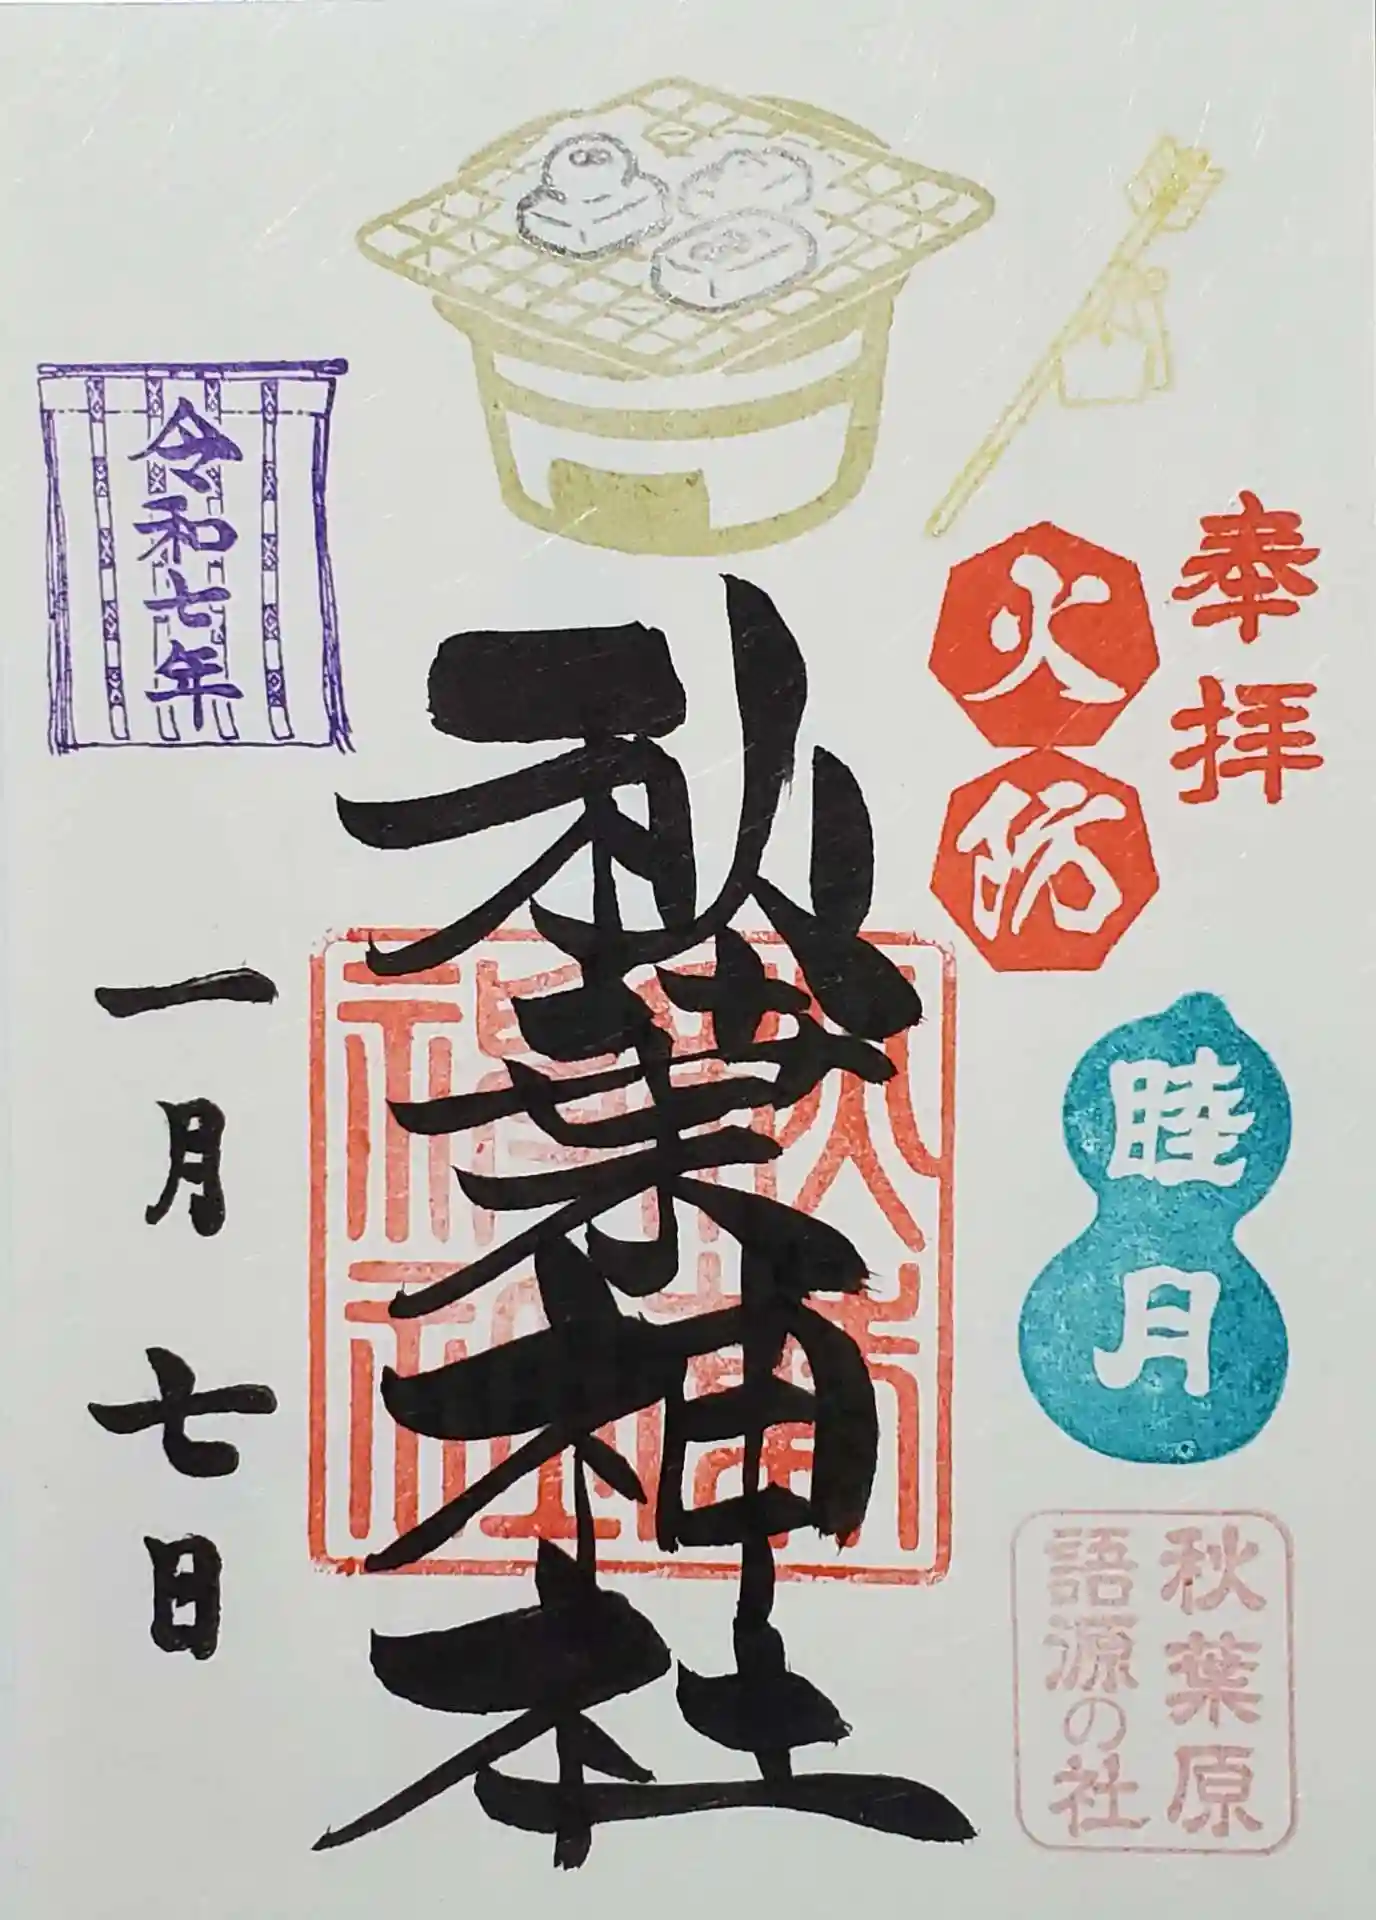 奉拝
火防
睦月
秋葉原
語源の社
秋葉神社
令和七年
一月七日